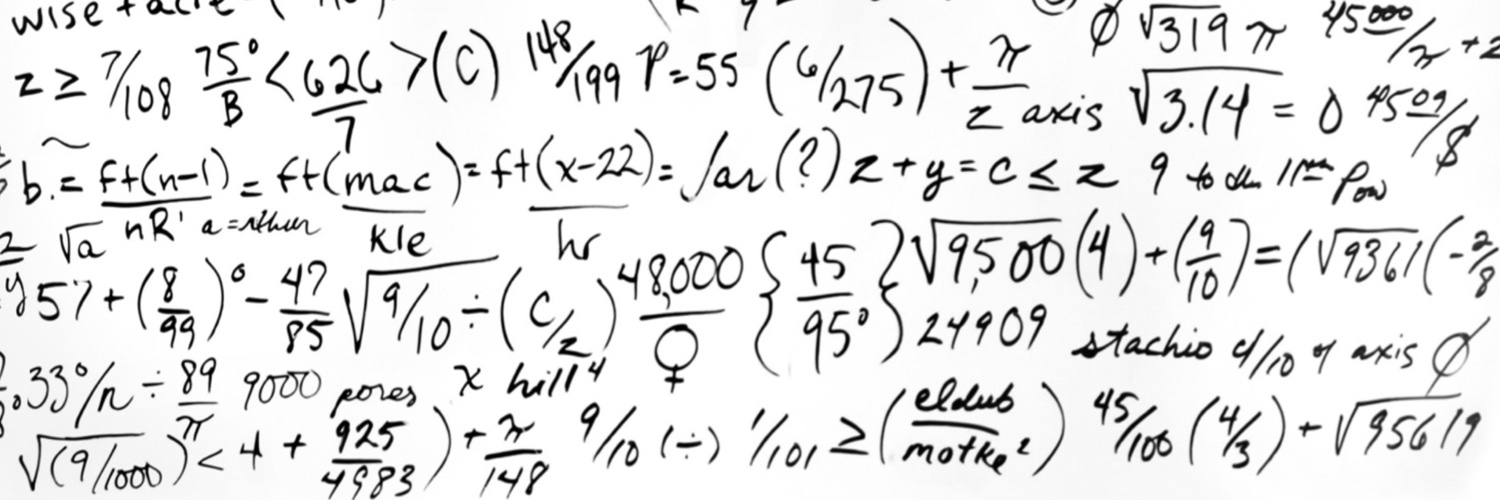 wise + acre (
z ≥ 7/108 75°/B < 626/7 > (C) 148/199 P = 55 (6/275) + π/z axis √3.14 = 0 4509/$
∅ √319 π 45000/π + 2
b. = ft(n-1)/nR' = ft(mac)/kle = ft(x-22)/hr = far (?) z + y = c ≤ z 9 to the 11th Pow
√a a = other
y 57 + (8/99)° - 47/85 √9/10 ÷ (C/z) 48,000/♀ {45/95°} √9,500 (4) + (9/10) = (√9361 (-2/8
24909 stachio 4/10 of axis ∅
.33°/n ÷ 89/π 9000 pores x hill 4
√(9/1000) < 4 + 925/4983) + π/148 9/10 (÷) 1/101 ≥ (eldub/motke²) 45/100 (4/3) + √95619